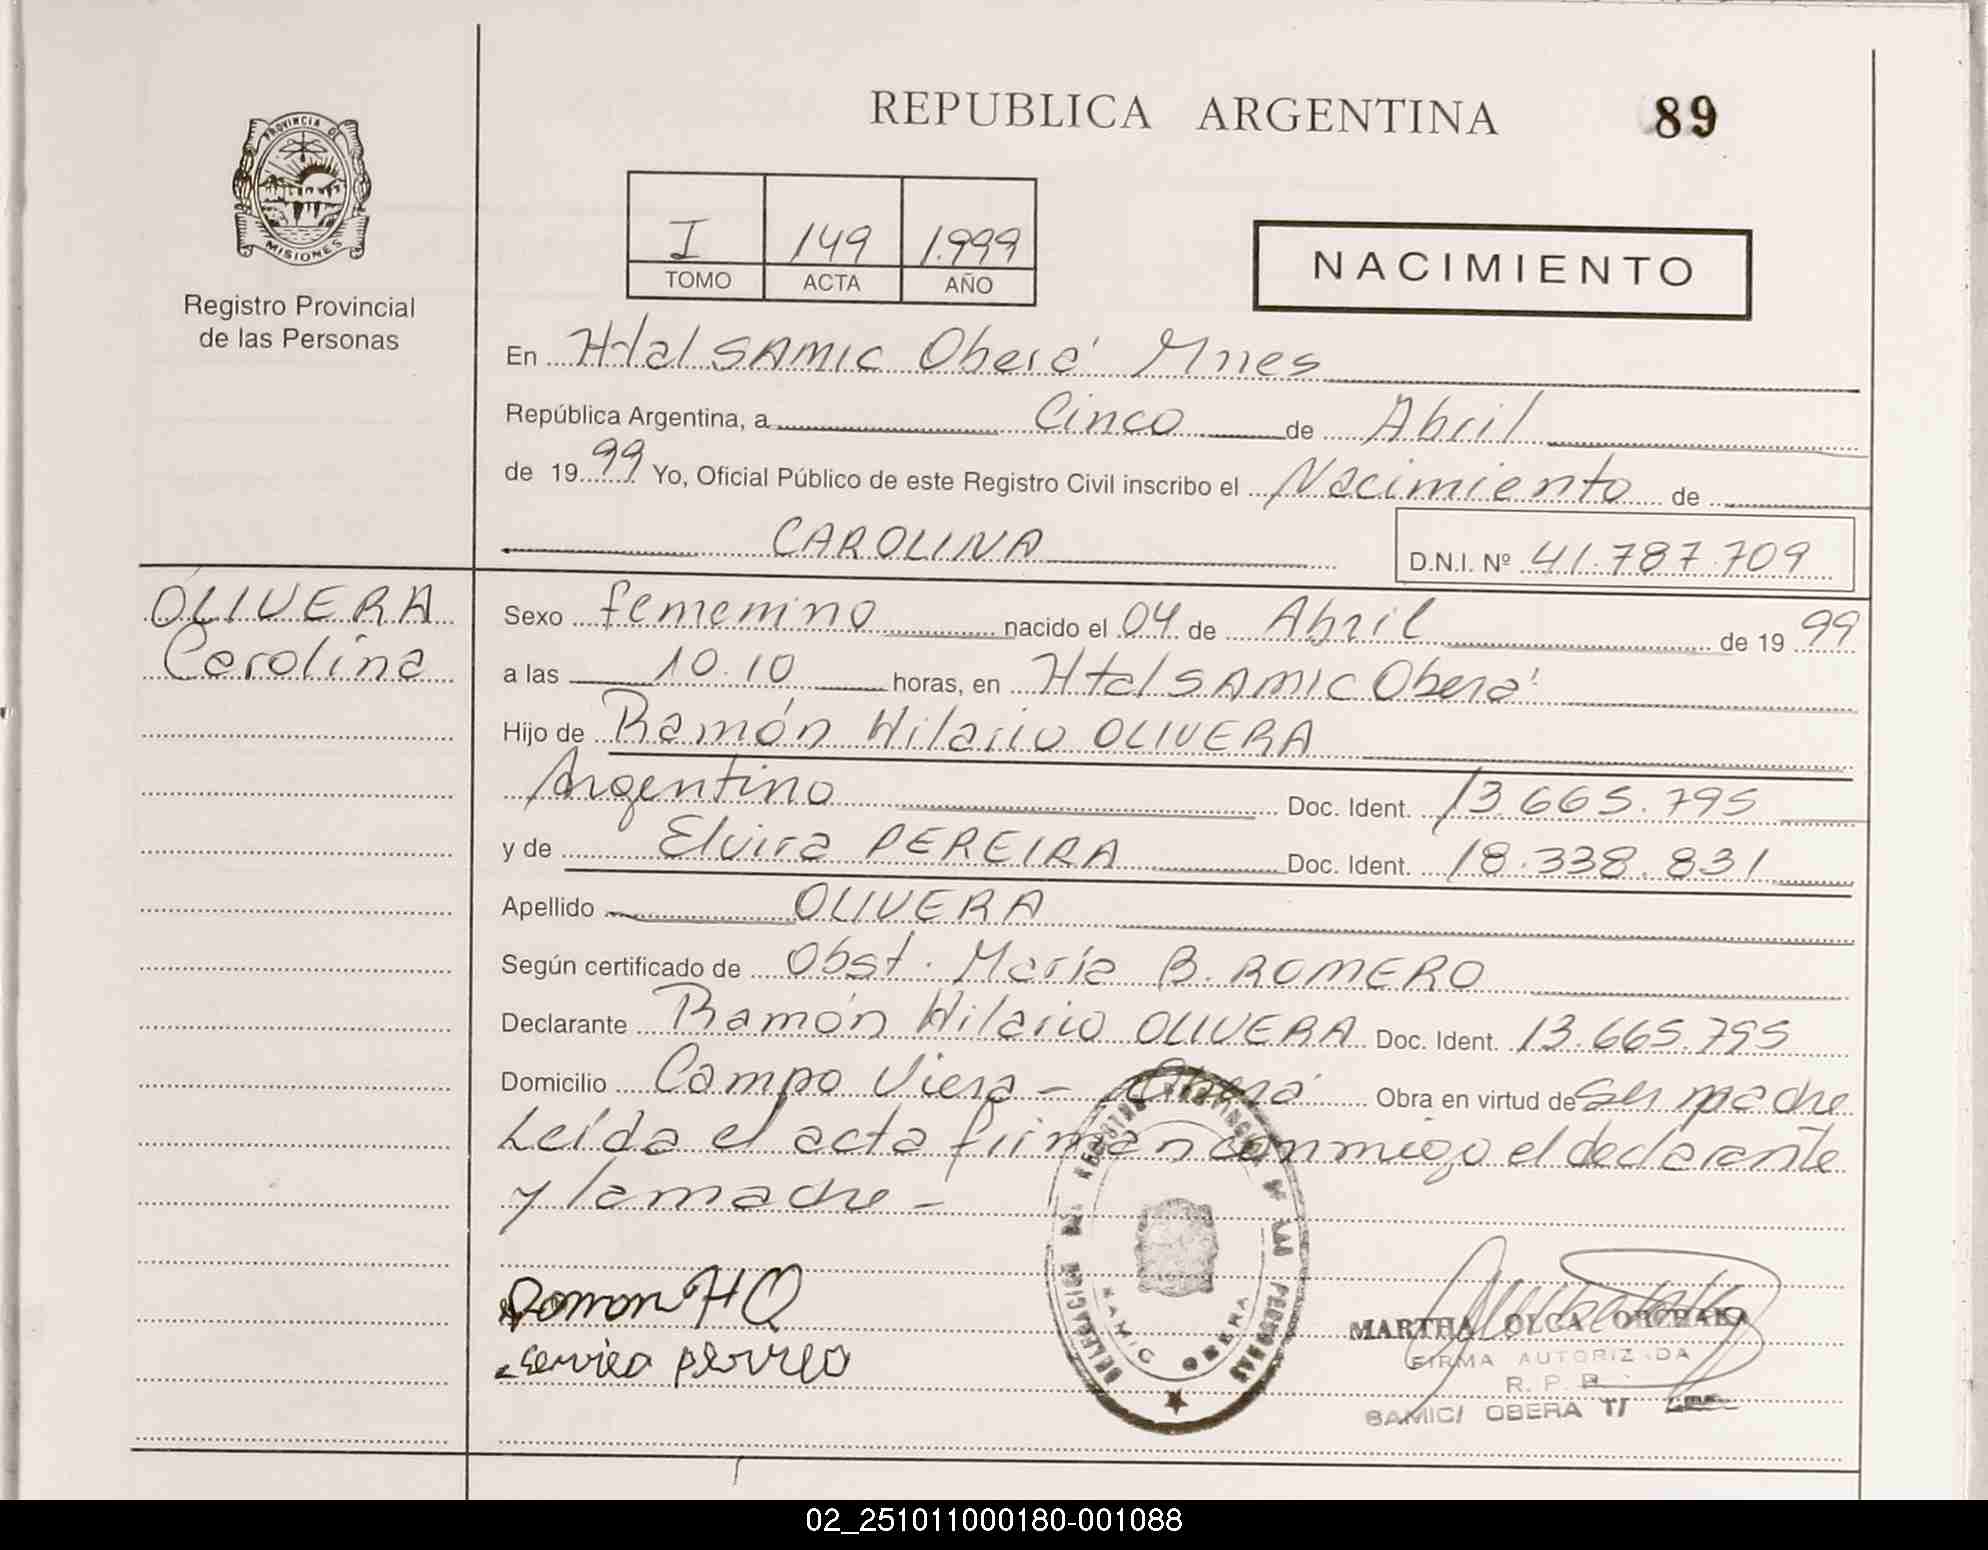 REPUBLICA ARGENTINA
89
PROVINCIA DE
MISIONES
Registro Provincial
de las Personas
I 149 1.999
TOMO ACTA AÑO
NACIMIENTO
En Htal SAMIC Oberá Mnes
República Argentina, a Cinco de Abril
de 1999 Yo, Oficial Público de este Registro Civil inscribo el Nacimiento de
CAROLINA
D.N.I. Nº 41.787.709
OLIVERA
Carolina
Sexo femenino nacido el 04 de Abril de 1999
a las 10.10 horas, en Htal SAMIC Oberá
Hijo de Ramón Hilario OLIVERA
Argentino Doc. Ident. 13.665.795
y de Elvira PEREIRA Doc. Ident. 18.338.831
Apellido OLIVERA
Según certificado de Obst. María B. ROMERO
Declarante Ramón Hilario OLIVERA Doc. Ident. 13.665.795
Domicilio Campo Viera - Oberá Obra en virtud de Ser madre
Leída el acta firman conmigo el declarante
y la madre -
Ramon H O
DELEGACION DEL REGISTRO PROVINCIAL DE LAS PERSONAS
SAMIC OBERA
MARTHA OLGA
FIRMA AUTORIZADA
R. P. P.
SAMIC/ OBERA
02_251011000180-001088